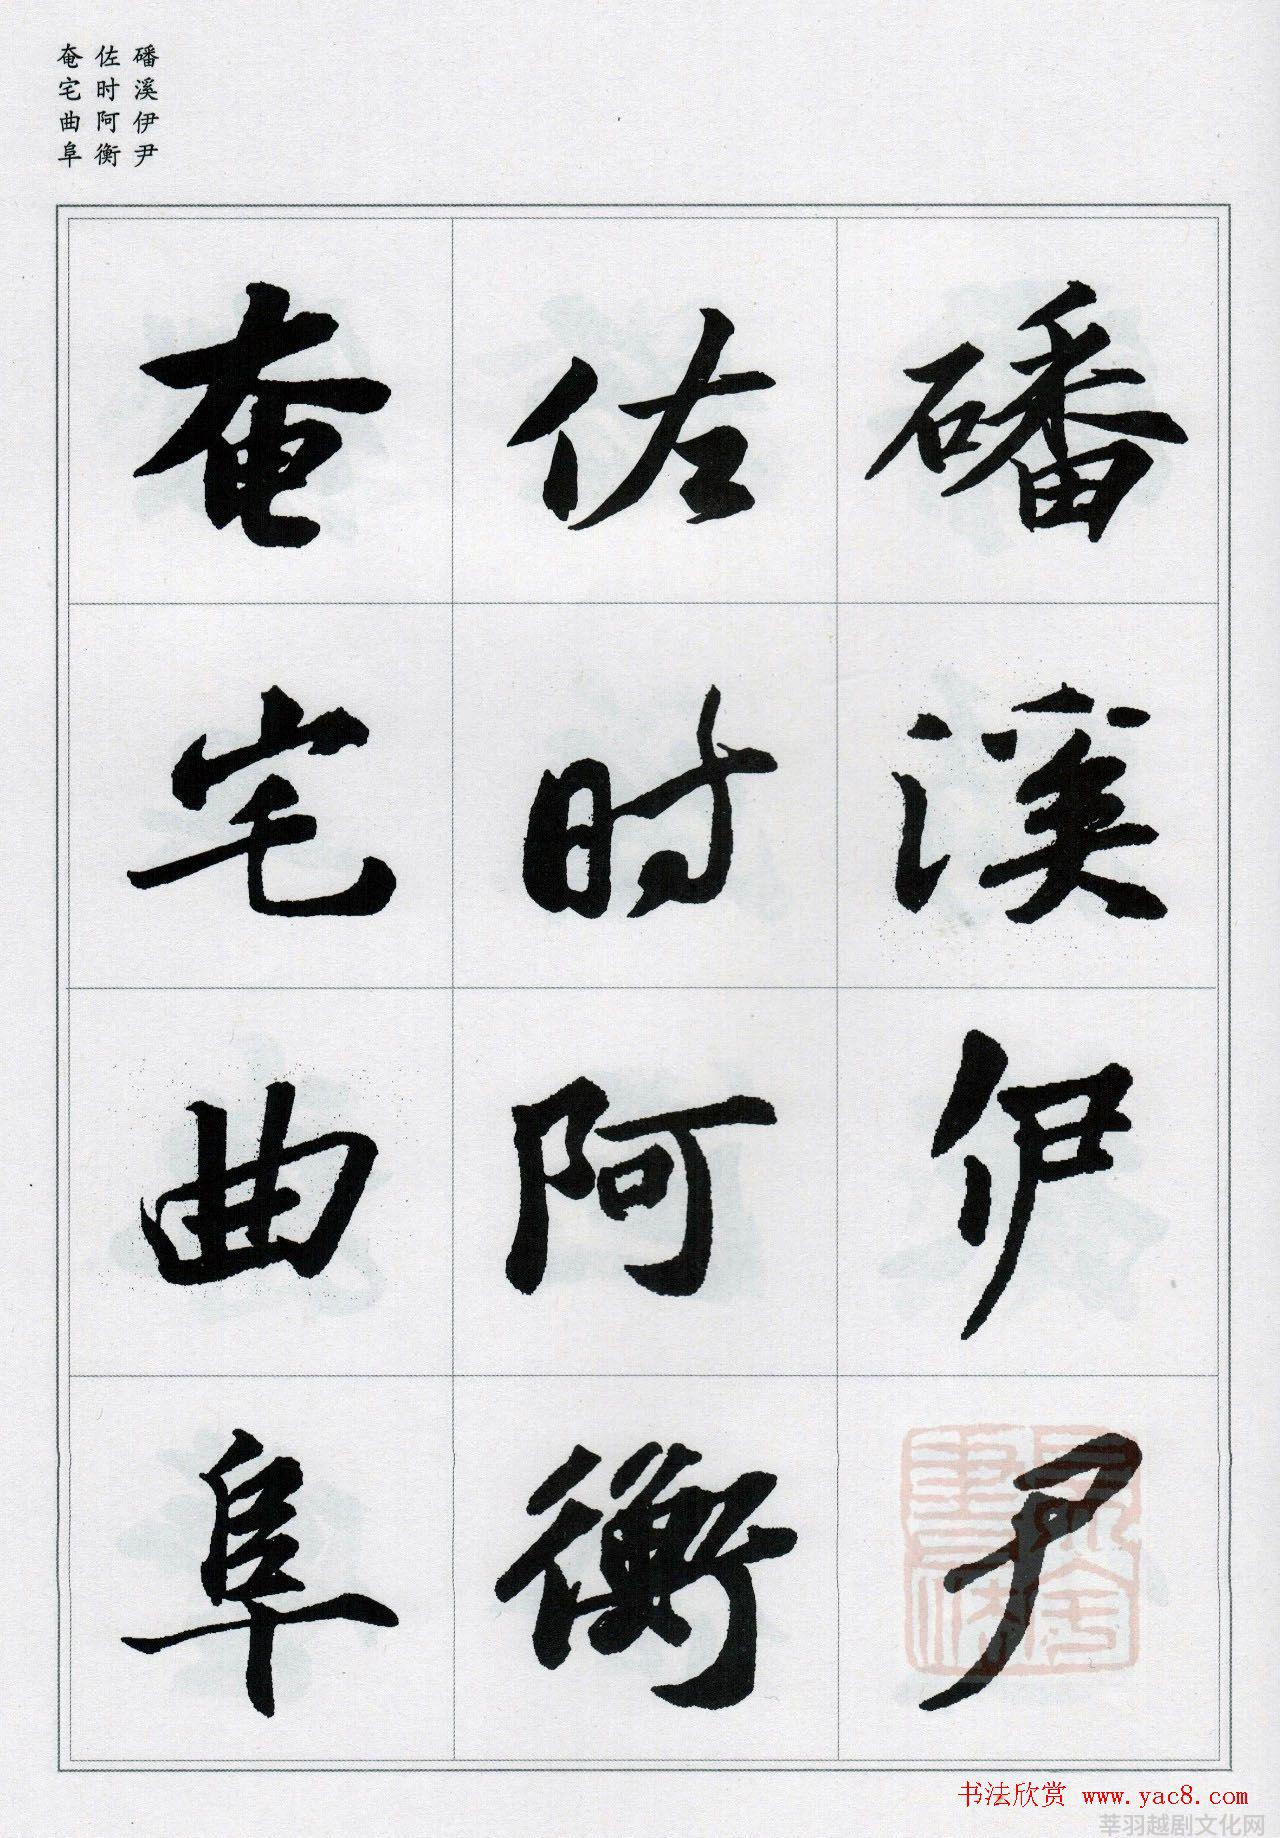 磻溪伊尹
佐时阿衡
奄宅曲阜
磻溪伊尹
佐时阿衡
奄宅曲阜
书法欣赏 www.yac8.com
莘羽越剧文化网